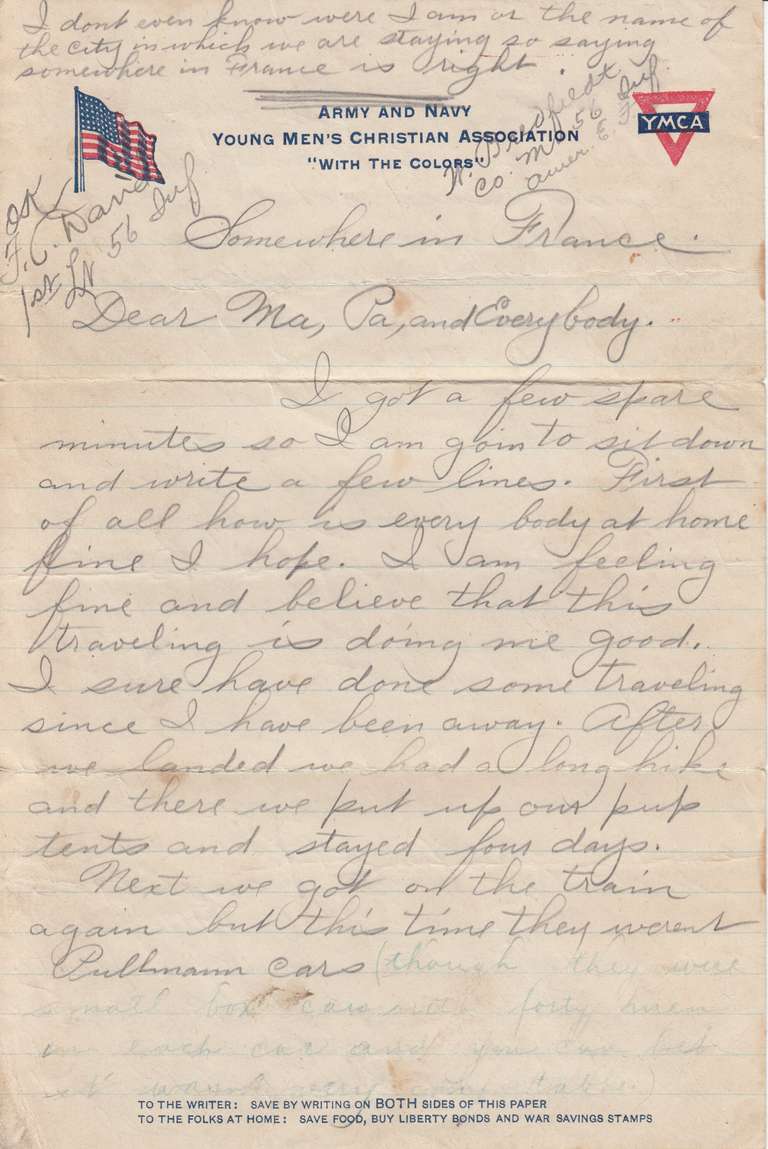 I dont even know were I am or the name of
the city in which we are staying so saying
somewhere in France is right.
ARMY AND NAVY
YOUNG MEN'S CHRISTIAN ASSOCIATION
"WITH THE COLORS"
YMCA
W. Bredfeldt
Co. M. 56 Inf
Amer. E. F.
OK
F. C.
1st Lt 56 Inf
Somewhere in France.
Dear Ma, Pa, and Everybody.
I got a few spare
minutes so I am goin to sit down
and write a few lines. First
of all how is every body at home
fine I hope. I am feeling
fine and believe that this
traveling is doing me good.
I sure have done some traveling
since I have been away. After
we landed we had a long hike
and there we put up our pup
tents and stayed four days.
Next we got on the train
again but this time they werent
Pullmann cars (though they were
small box cars forty men
in each car and you can bet
it wasnt very)
TO THE WRITER: SAVE BY WRITING ON BOTH SIDES OF THIS PAPER
TO THE FOLKS AT HOME: SAVE FOOD, BUY LIBERTY BONDS AND WAR SAVINGS STAMPS